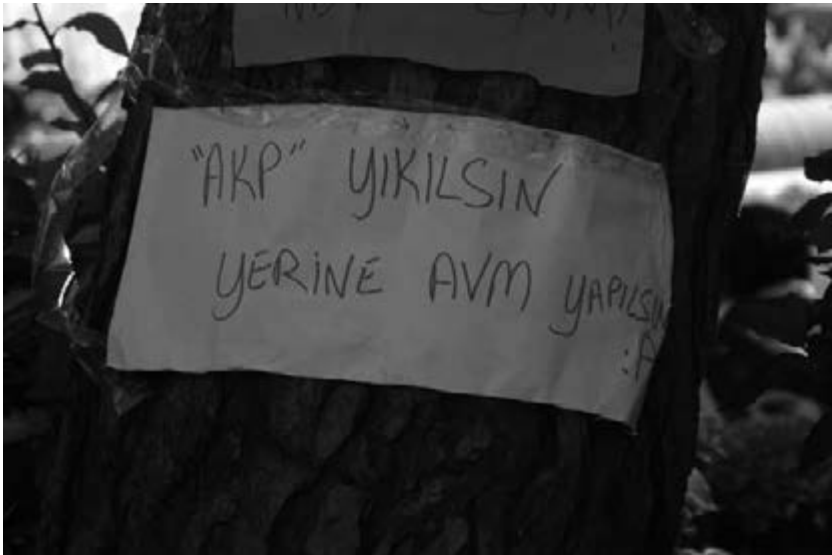 "AKP" YIKILSIN
YERİNE AVM YAPILSIN